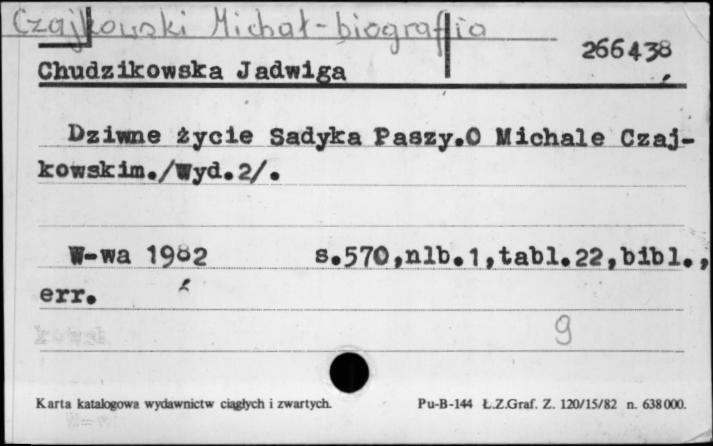 Czajkowski Michał-biografia
266438
Chudzikowska Jadwiga
Dziwne życie Sadyka Paszy.O Michale Czaj-
kowskim./Wyd.2/.
W-wa 1982 s.570,nlb.1,tabl.22,bibl.,
err.
9
Karta katalogowa wydawnictw ciągłych i zwartych. Pu-B-144 Ł.Z.Graf. Z. 120/15/82 n. 638000.